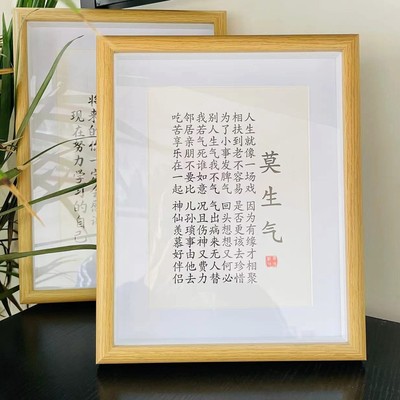 莫生气
人生就像一场戏 因为有缘才相聚
相扶到老不容易 是否更该去珍惜
为了小事发脾气 回头想想又何必
别人生气我不气 气出病来无人替
我若气死谁如意 况且伤神又费力
邻居亲朋不要比 儿孙琐事由他去
吃苦享乐在一起 神仙羡慕好伴侣
将来的你一定会感谢
现在努力学习的自己